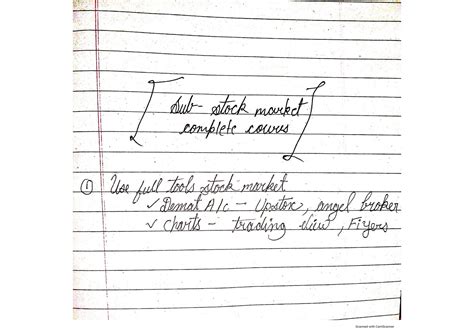 Sub- stock market
complete cours
① Use full tools stock market
✓ Demat A/c - Upstox, angel broker
✓ Charts - trading view, Fiyers
Scanned with CamScanner